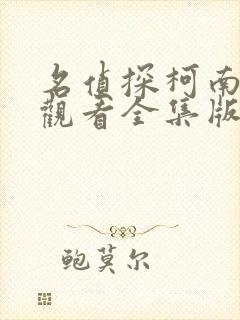 名偵探柯南
觀看全集版
鲍莫尔